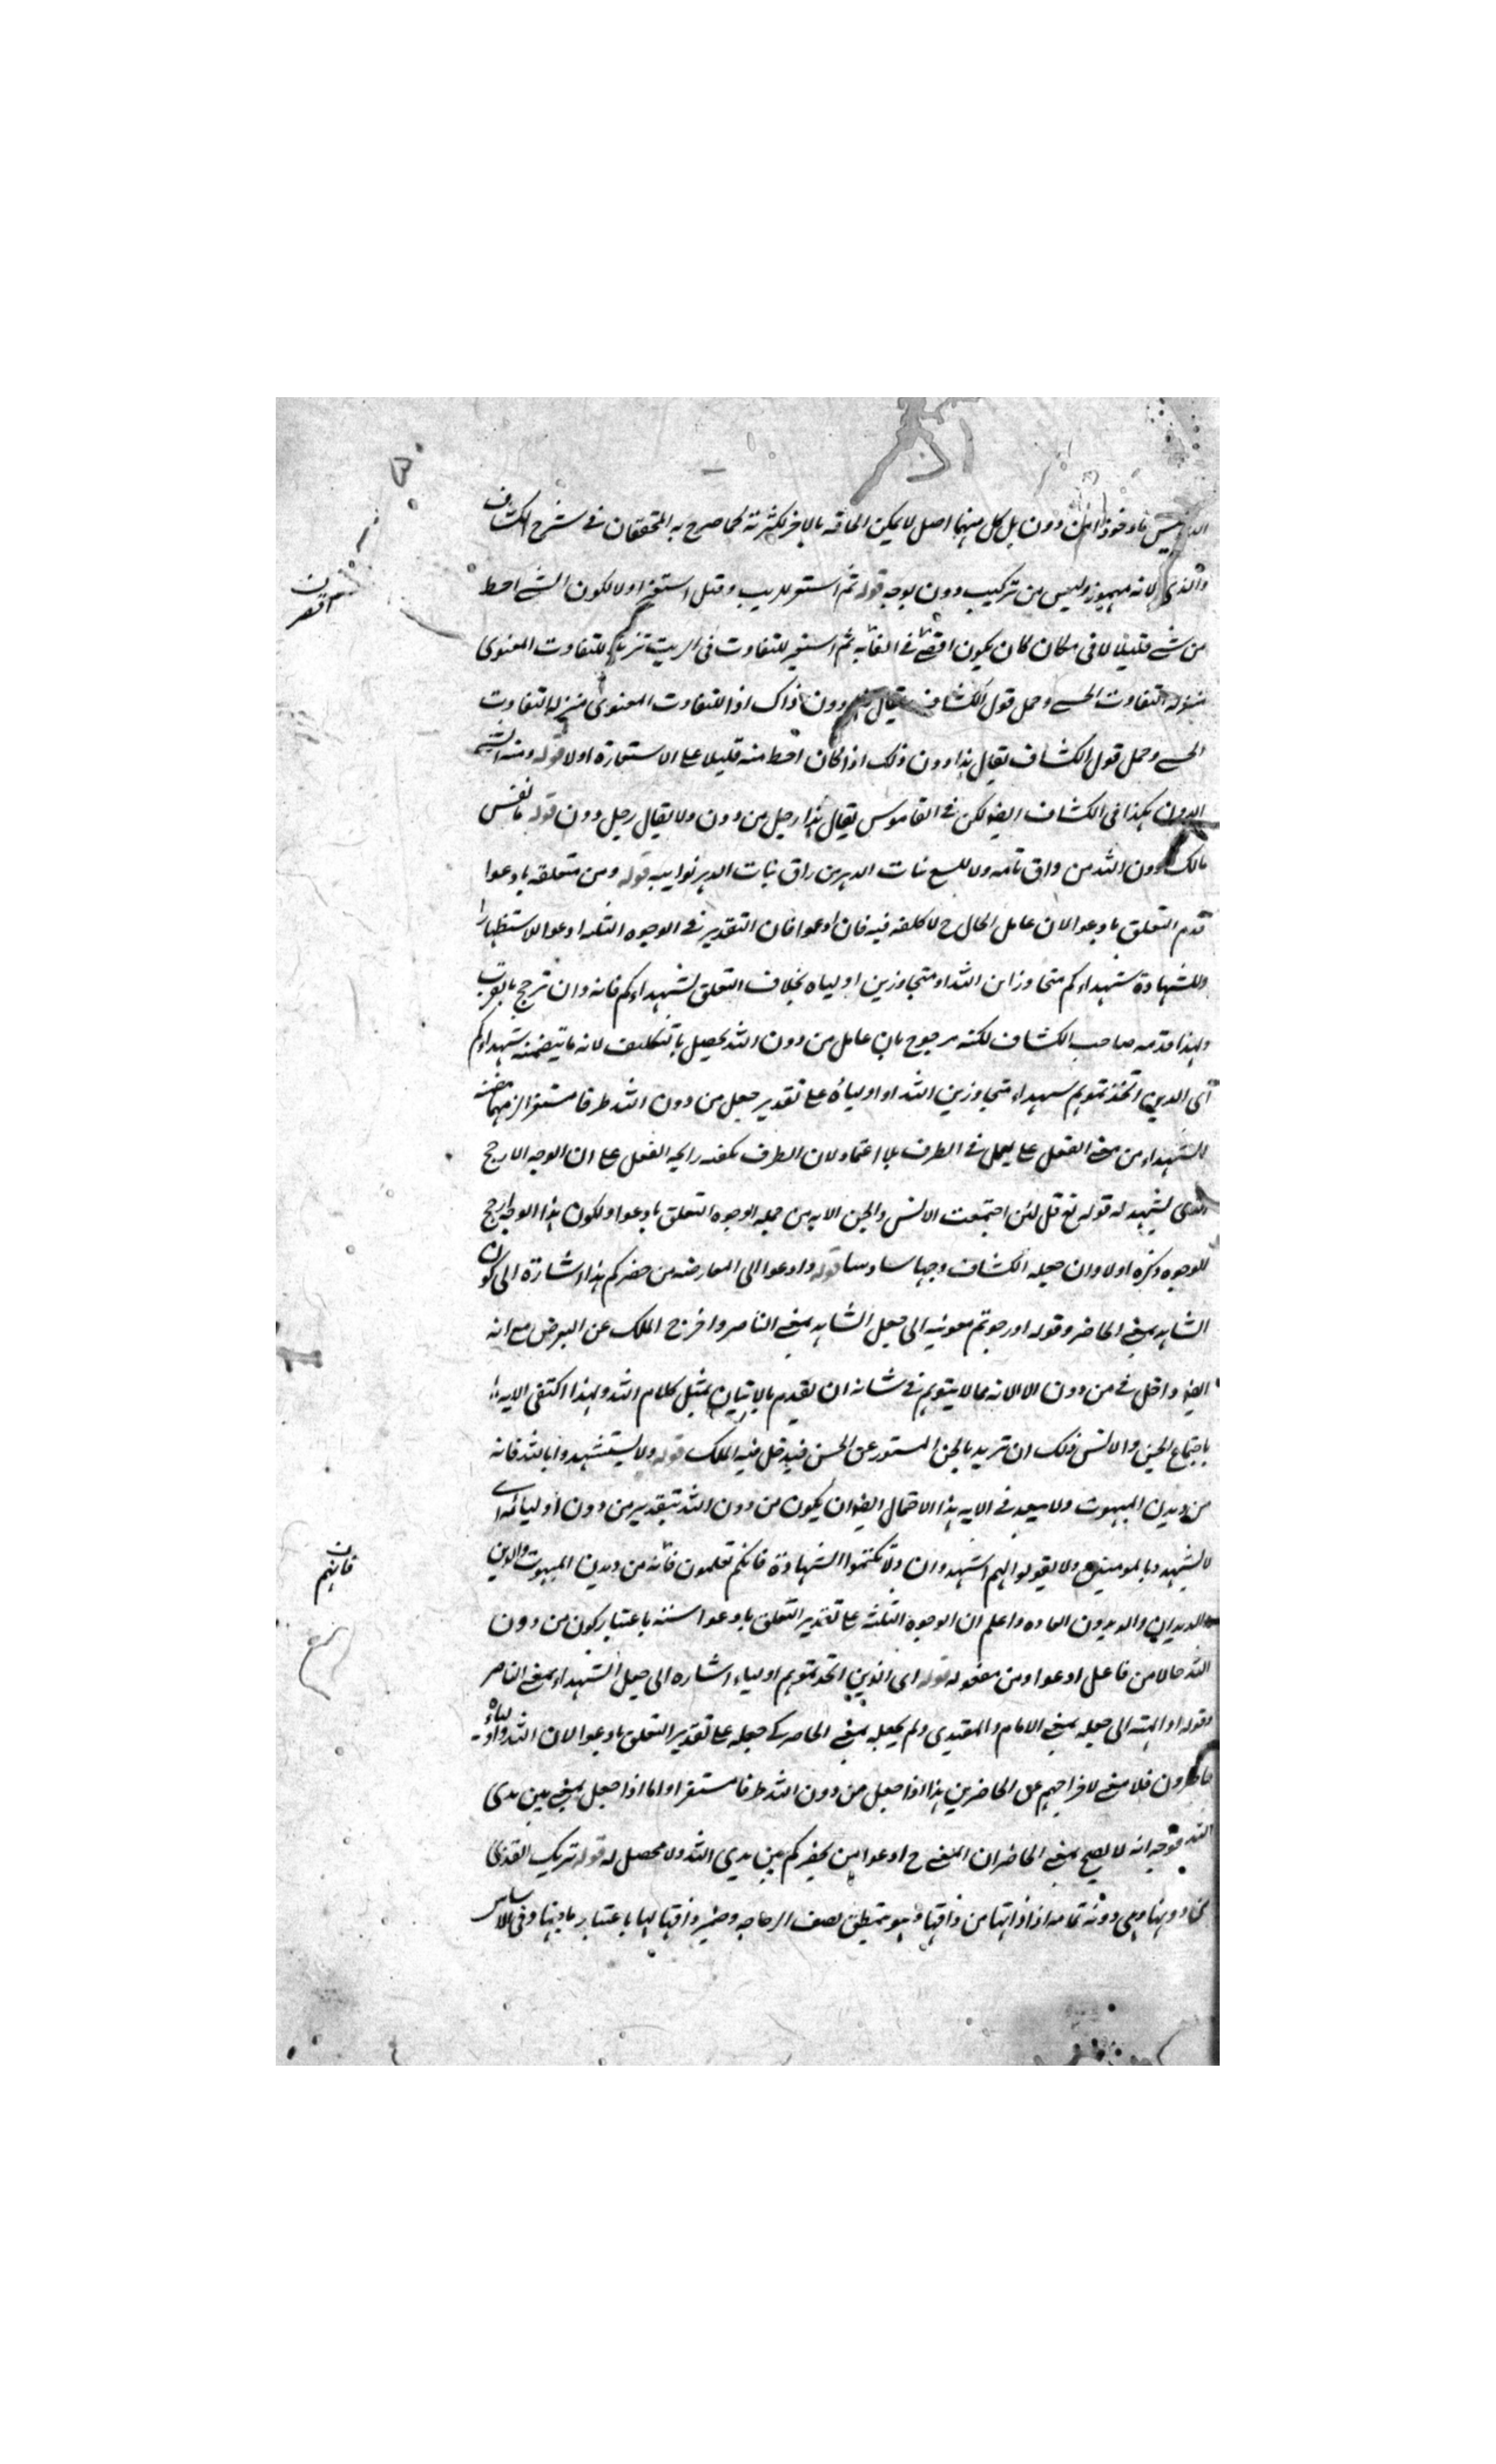 ليس ماخوذا من دون بل كل منهما اصل لا يمكن الحاقه بالاخر لكثرته كما صرح به المحققان في شرح الكشاف
والدني لانه مهموز وليس من تركيب دون بوجه قوله ثم استعير للريب وقيل استعير اولا لكون الشے احط
من شے قليلا لا في مكان كان يكون اقصر في القامة ثم استعير للتفاوت في الريب تنزيلا للتفاوت المعنوى
منزلة التفاوت الحسے وحمل قول الكشاف يقال دون ذاك اذا للتفاوت المعنوى منزلة التفاوت
الحسے وحمل قول الكشاف يقال هذا دون ذلك اذا كان احط منه قليلا على الاستعارة اولا قوله ومنه الشے
الدون هكذا في الكشاف ايضا لكن في القاموس يقال هذا رجل من دون ولا يقال رجل دون قوله يا نفس
مالك دون الله من واق تمامه ولا للسع بنات الدهر من راق بنات الدهر نوايبه قوله ومن متعلقة بادعوا
قدم التعلق بادعوا لان عامل الحال ح لا كلفة فيه فان ادعوا فان التقدير في الوجوه الثلثة ادعوا للاستظهار
وللشهادة شهداءكم متجاوزين الله او متجاوزين اولياه بخلاف التعلق بشهداءكم فانه وان ترجح بالقرب
ولهذا قدمه صاحب الكشاف لكنه مرجوح بان عامل من دون الله يحصل بالتكليف لانه ما يتضمنه شهداءكم
اى الذين اتخذتموهم شهداء متجاوزين الله او اولياؤه على تقدير جعل من دون الله ظرفا مستقرا
للشهداء من معنے الفعل على يعمل في الظرف بلا اعتماد لان الظرف تكفيه رايحة الفعل على ان الوجه الارجح
الذى يشهد له قوله تع قل لئن اجتمعت الانس والجن الاية من جملة الوجوه التعلق بادعوا ولكون هذا الوجه ارجح
الوجوه ذكره اولا وان جعله الكشاف وجها سادسا قوله وادعوا الى المعارضة من حضركم هذا اشارة الى كون
الشاهد بمعنے الحاضر وقوله او رجوتم معونته الى جعل الشاهد بمعنے الناصر واخرج الملك عن البرض مع انه
ايضا داخل في من دون الله لانه مما لا يتوهم في شانه ان يقدم بالاتيان بمثل كلام الله ولهذا اكتفى الاية
باجتماع الجن والانس ولك ان تريد بالجن المستور عن الحس فيدخل فيه الملك قوله ولا يستشهدوا بالله فانه
من ديدن المبهوت ولا يبعد في الاية هذا الاحتمال ايضا ان يكون من دون الله بتقدير من دون اوليائه اى
لا يشهدوا بالمومنين ولا يقولوا لهم اشهدوا ان ولا تكتموا الشهادة فانكم تعلمون فانه من ديدن المبهوت والدين
والديدان والديدون العادة واعلم ان الوجوه الثلثة على تقدير التعلق بادعوا ستة باعتبار كون من دون
الله حالا من فاعل ادعوا ومن مفعوله قوله اى الذين اتخذتموهم اولياء اشاره الى جعل الشهداء بمعنے الناصر
وقوله او الهة الى جعله بمعنے الامام والمقتدى ولم يجعله بمعنے الحاضر كے جعله على تقدير التعلق بادعوا لان الله واولياه
حاضرون فلا معنے لاخراجهم عن الحاضرين هذا اذا جعل من دون الله ظرفا مستقرا واما اذا جعل بمعنے بين يدى
الله فوجه انه لا يصح بمعنے الحاضر ان المعنے ح ادعوا من يحضركم بين يدي الله ولا محصل له قوله تريك القذى
من دونها وهى دونه تمامه اذا ذاقها من ذاقها يتمطق يصف الزجاجة وضمير ذاقها لها باعتبار ما فيها وفى الاساس
فانهم